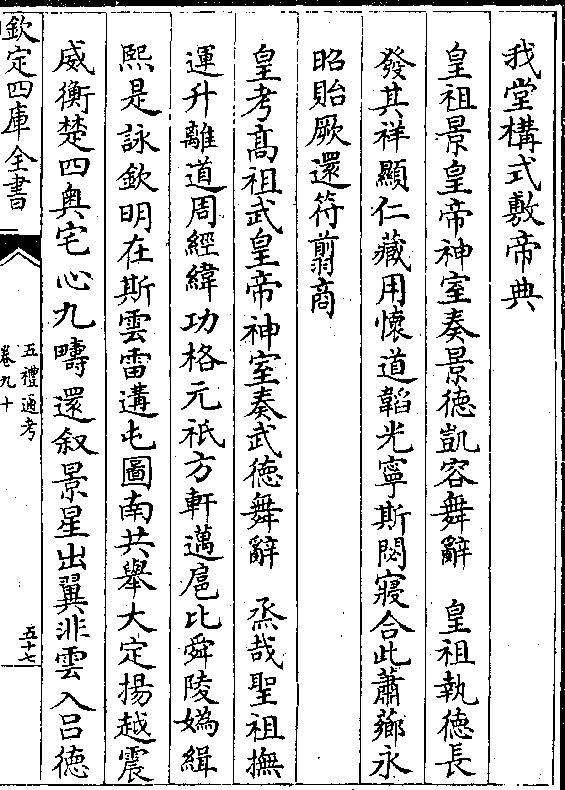 我堂構式敷帝典
皇祖景皇帝神室奏景德凱容舞辭　皇祖執德長
發其祥顯仁藏用懷道韜光寧斯閟寢合此蕭薌永
昭貽厥還符翦商
皇考高祖武皇帝神室奏武德舞辭　烝哉聖祖撫
運升離道周經緯功格元祇方軒邁扈比舜陵媯緝
熙是詠欽明在斯雲雷遘屯圖南共舉大定揚越震
威衡楚四奧宅心九疇還叙景星出翼非雲入呂德
欽定四庫全書
五禮通考
卷九十
五十七